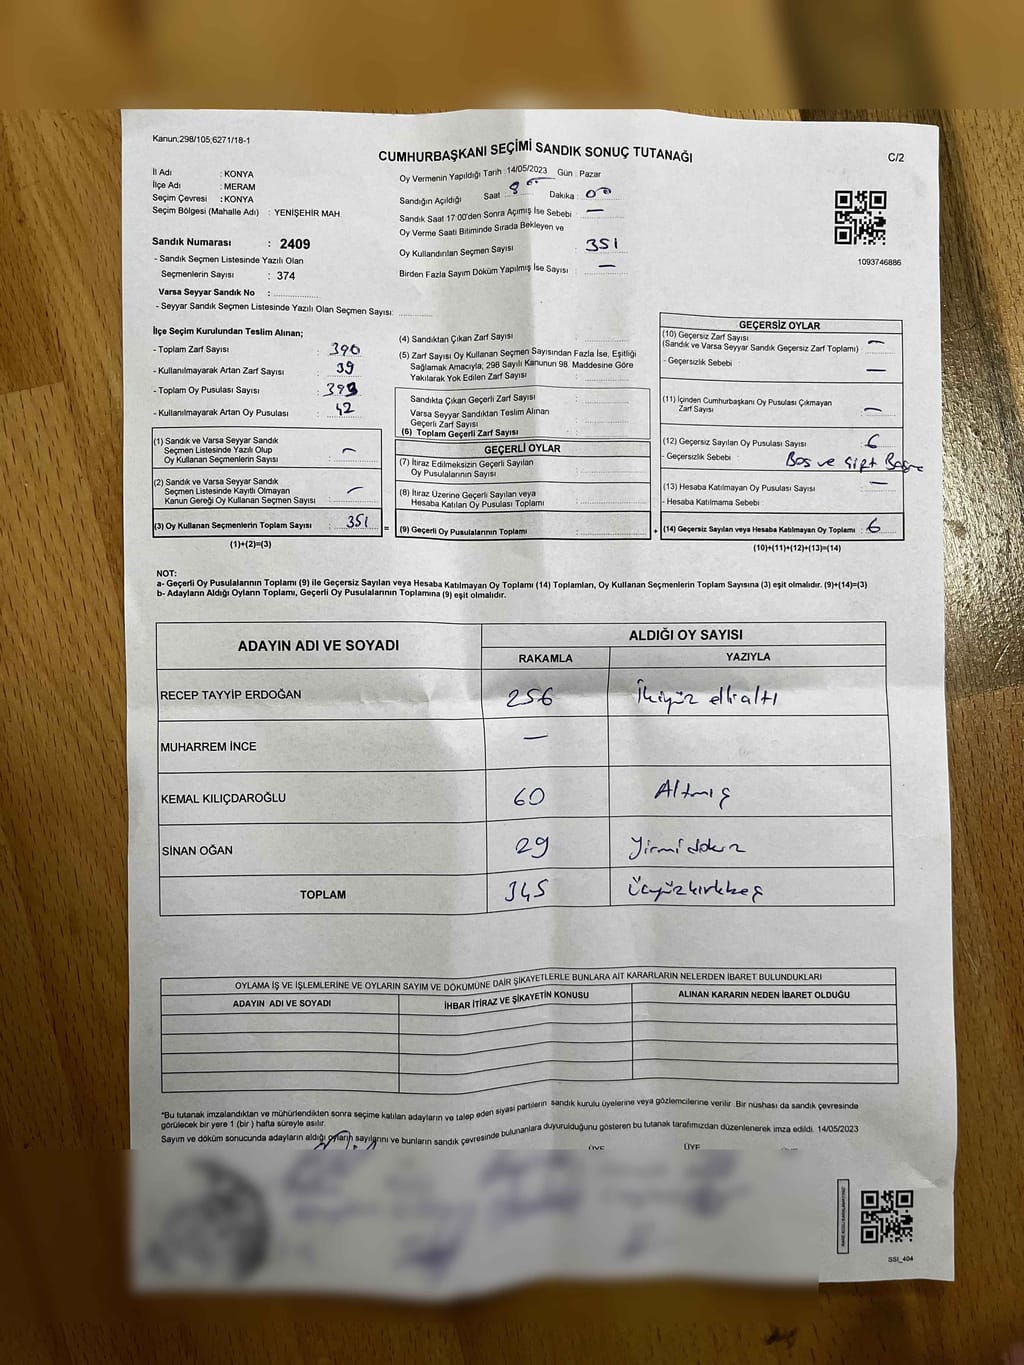 Kanun,298/105,6271/18-1
CUMHURBAŞKANI SEÇİMİ SANDIK SONUÇ TUTANAĞI
C/2
İl Adı : KONYA
İlçe Adı : MERAM
Seçim Çevresi : KONYA
Seçim Bölgesi (Mahalle Adı) : YENİŞEHİR MAH.
Sandık Numarası : 2409
- Sandık Seçmen Listesinde Yazılı Olan
Seçmenlerin Sayısı : 374
Varsa Seyyar Sandık No :
- Seyyar Sandık Seçmen Listesinde Yazılı Olan Seçmen Sayısı:
Oy Vermenin Yapıldığı Tarih :14/05/2023 Gün : Pazar
Sandığın Açıldığı Saat : 8 00 Dakika : 00
Sandık Saat 17:00'den Sonra Açımış İse Sebebi : —
Oy Verme Saati Bitiminde Sırada Bekleyen ve
Oy Kullandırılan Seçmen Sayısı : 351
Birden Fazla Sayım Döküm Yapılmış İse Sayısı : —
1093746886
İlçe Seçim Kurulundan Teslim Alınan;
- Toplam Zarf Sayısı : 390
- Kullanılmayarak Artan Zarf Sayısı : 39
- Toplam Oy Pusulası Sayısı : 393
- Kullanılmayarak Artan Oy Pusulası : 42
(1) Sandık ve Varsa Seyyar Sandık
Seçmen Listesinde Yazılı Olup
Oy Kullanan Seçmenlerin Sayısı : —
(2) Sandık ve Varsa Seyyar Sandık
Seçmen Listesinde Kayıtlı Olmayan
Kanun Gereği Oy Kullanan Seçmen Sayısı : —
(3) Oy Kullanan Seçmenlerin Toplam Sayısı : 351
(1)+(2)=(3)
=
(4) Sandıktan Çıkan Zarf Sayısı :
(5) Zarf Sayısı Oy Kullanan Seçmen Sayısından Fazla İse, Eşitliği
Sağlamak Amacıyla, 298 Sayılı Kanunun 98. Maddesine Göre
Yakılarak Yok Edilen Zarf Sayısı :
Sandıkta Çıkan Geçerli Zarf Sayısı :
Varsa Seyyar Sandıktan Teslim Alınan
Geçerli Zarf Sayısı :
(6) Toplam Geçerli Zarf Sayısı :
GEÇERLİ OYLAR
(7) İtiraz Edilmeksizin Geçerli Sayılan
Oy Pusulalarının Sayısı :
(8) İtiraz Üzerine Geçerli Sayılan veya
Hesaba Katılan Oy Pusulası Toplamı :
(9) Geçerli Oy Pusulalarının Toplamı :
+
GEÇERSİZ OYLAR
(10) Geçersiz Zarf Sayısı :
(Sandık ve Varsa Seyyar Sandık Geçersiz Zarf Toplamı) —
- Geçersizlik Sebebi : —
(11) İçinden Cumhurbaşkanı Oy Pusulası Çıkmayan
Zarf Sayısı : —
(12) Geçersiz Sayılan Oy Pusulası Sayısı : 6
- Geçersizlik Sebebi : Boş ve çift
(13) Hesaba Katılmayan Oy Pusulası Sayısı : —
- Hesaba Katılmama Sebebi :
(14) Geçersiz Sayılan veya Hesaba Katılmayan Oy Toplamı : 6
(10)+(11)+(12)+(13)=(14)
NOT:
a- Geçerli Oy Pusulalarının Toplamı (9) ile Geçersiz Sayılan veya Hesaba Katılmayan Oy Toplamı (14) Toplamları, Oy Kullanan Seçmenlerin Toplam Sayısına (3) eşit olmalıdır. (9)+(14)=(3)
b- Adayların Aldığı Oyların Toplamı, Geçerli Oy Pusulalarının Toplamına (9) eşit olmalıdır.
ADAYIN ADI VE SOYADI
ALDIĞI OY SAYISI
RAKAMLA YAZIYLA
RECEP TAYYİP ERDOĞAN 256 İkiyüz elli altı
MUHARREM İNCE —
KEMAL KILIÇDAROĞLU 60 Altmış
SİNAN OĞAN 29 Yirmi dokuz
TOPLAM 345 Üçyüzkırkbeş
OYLAMA İŞ VE İŞLEMLERİNE VE OYLARIN SAYIM VE DÖKÜMÜNE DAİR ŞİKAYETLERLE BUNLARA AİT KARARLARIN NELERDEN İBARET BULUNDUKLARI
ADAYIN ADI VE SOYADI İHBAR İTİRAZ VE ŞİKAYETİN KONUSU ALINAN KARARIN NEDEN İBARET OLDUĞU
*Bu tutanak imzalandıktan ve mühürlendikten sonra seçime katılan adayların ve talep eden siyasi partilerin sandık kurulu üyelerine veya gözlemcilerine verilir. Bir nüshası da sandık çevresinde
görülecek bir yere 1 (bir ) hafta süreyle asılır.
Sayım ve döküm sonucunda adayların aldığı oyların sayılarını ve bunların sandık çevresinde bulunanlara duyurulduğunu gösteren bu tutanak tarafımızdan düzenlenerek imza edildi. 14/05/2023
ÜYE ÜYE
SSI_404